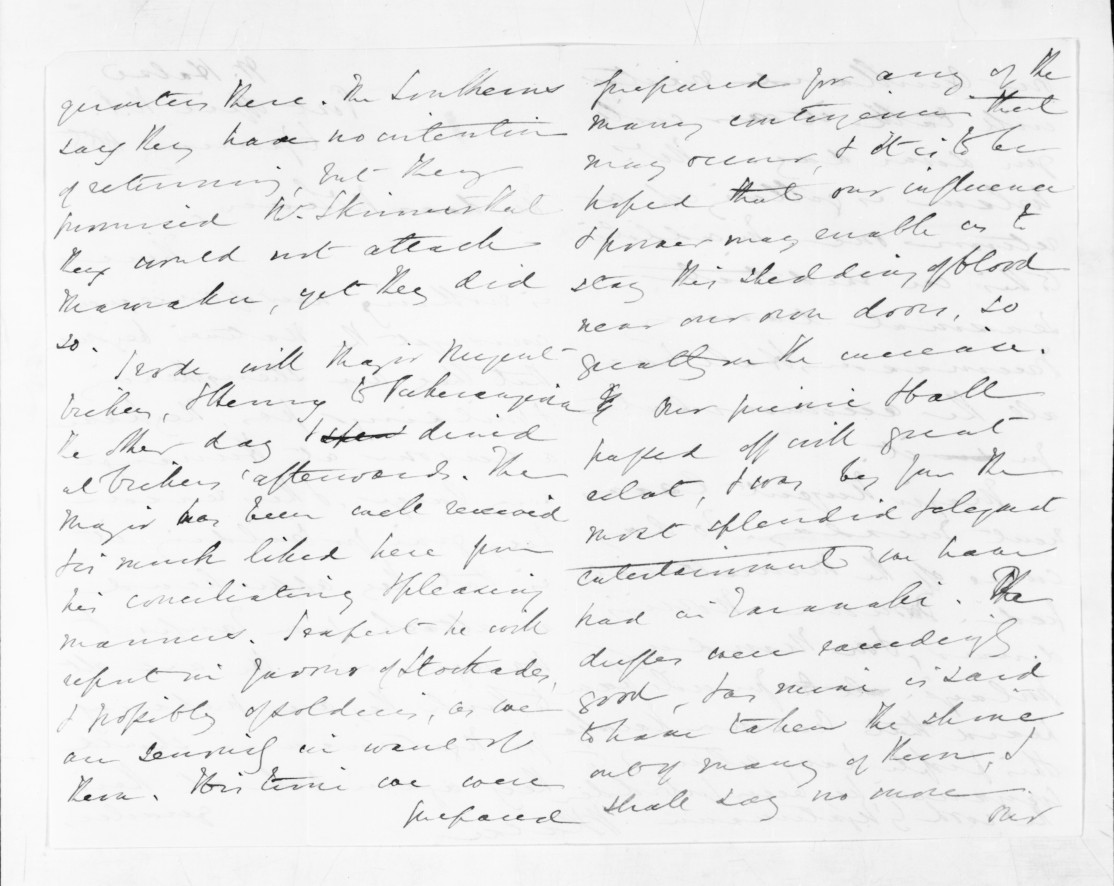 quarters there. The Southerns
say they have no intention
of returning, but they
promised Mr. Skinner that
they would not attach
Mamaku, yet they did
so.
I rode with Major Nugent
&Henry to
the other day & spent dined
at afterwards. The
Major has been well received
& is much liked here from
his conciliating & pleasing
manners. I expect he will
report in favour of Stockades,
& possibly of soldiers, as we
are seriously in want of
them. This time we were
prepared
prepared for any of the
many contingencies that
may occur, & it is to be
hoped that our influence
& power may enable us to
stay this shedding of blood
near our own doors, so
greatly on the increase.
Our picnic & ball
passed off with great
eclat, & was by far the
most splendid & elegant
entertainment we have
had in Taranaki. The
dresses were exceedingly
good, & as mine is said
to have taken the shine
out of many of them, I
shall say no more
our